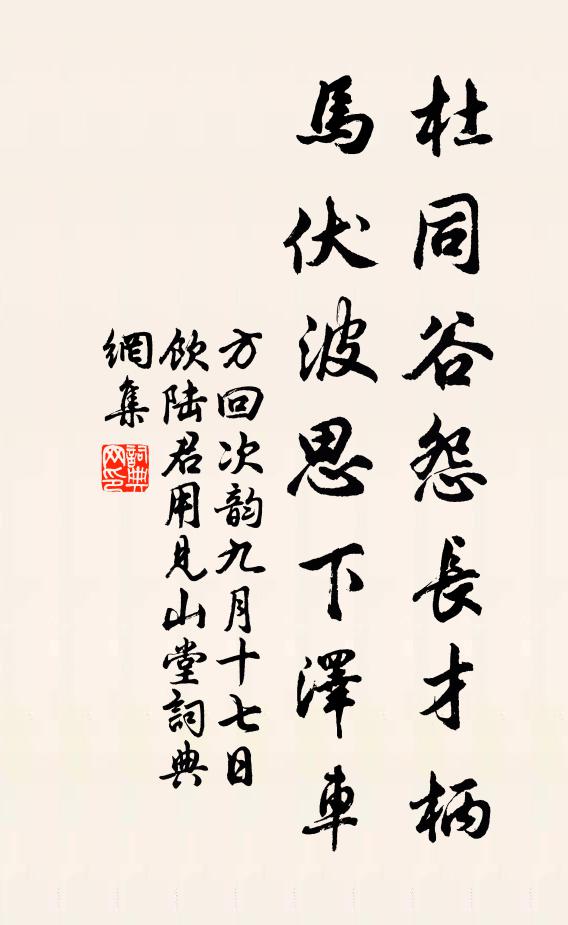 杜同谷怨長才柄
馬伏波思下澤車
方回次韵九月十七日
飲陆君用見山堂詞典
網集
詞典
网印